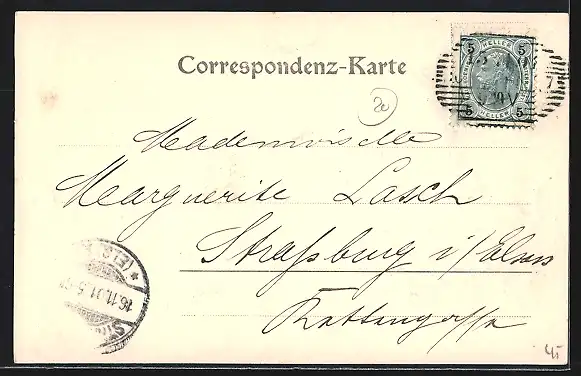 Correspondenz-Karte
5 HELLER 5
5 HELLER 5
20
Mademoiselle
Marguerite Lasch
Straßburg i/Elsass
Rattengasse
(ELS.)
16.11.01.5-6
Str
4,-